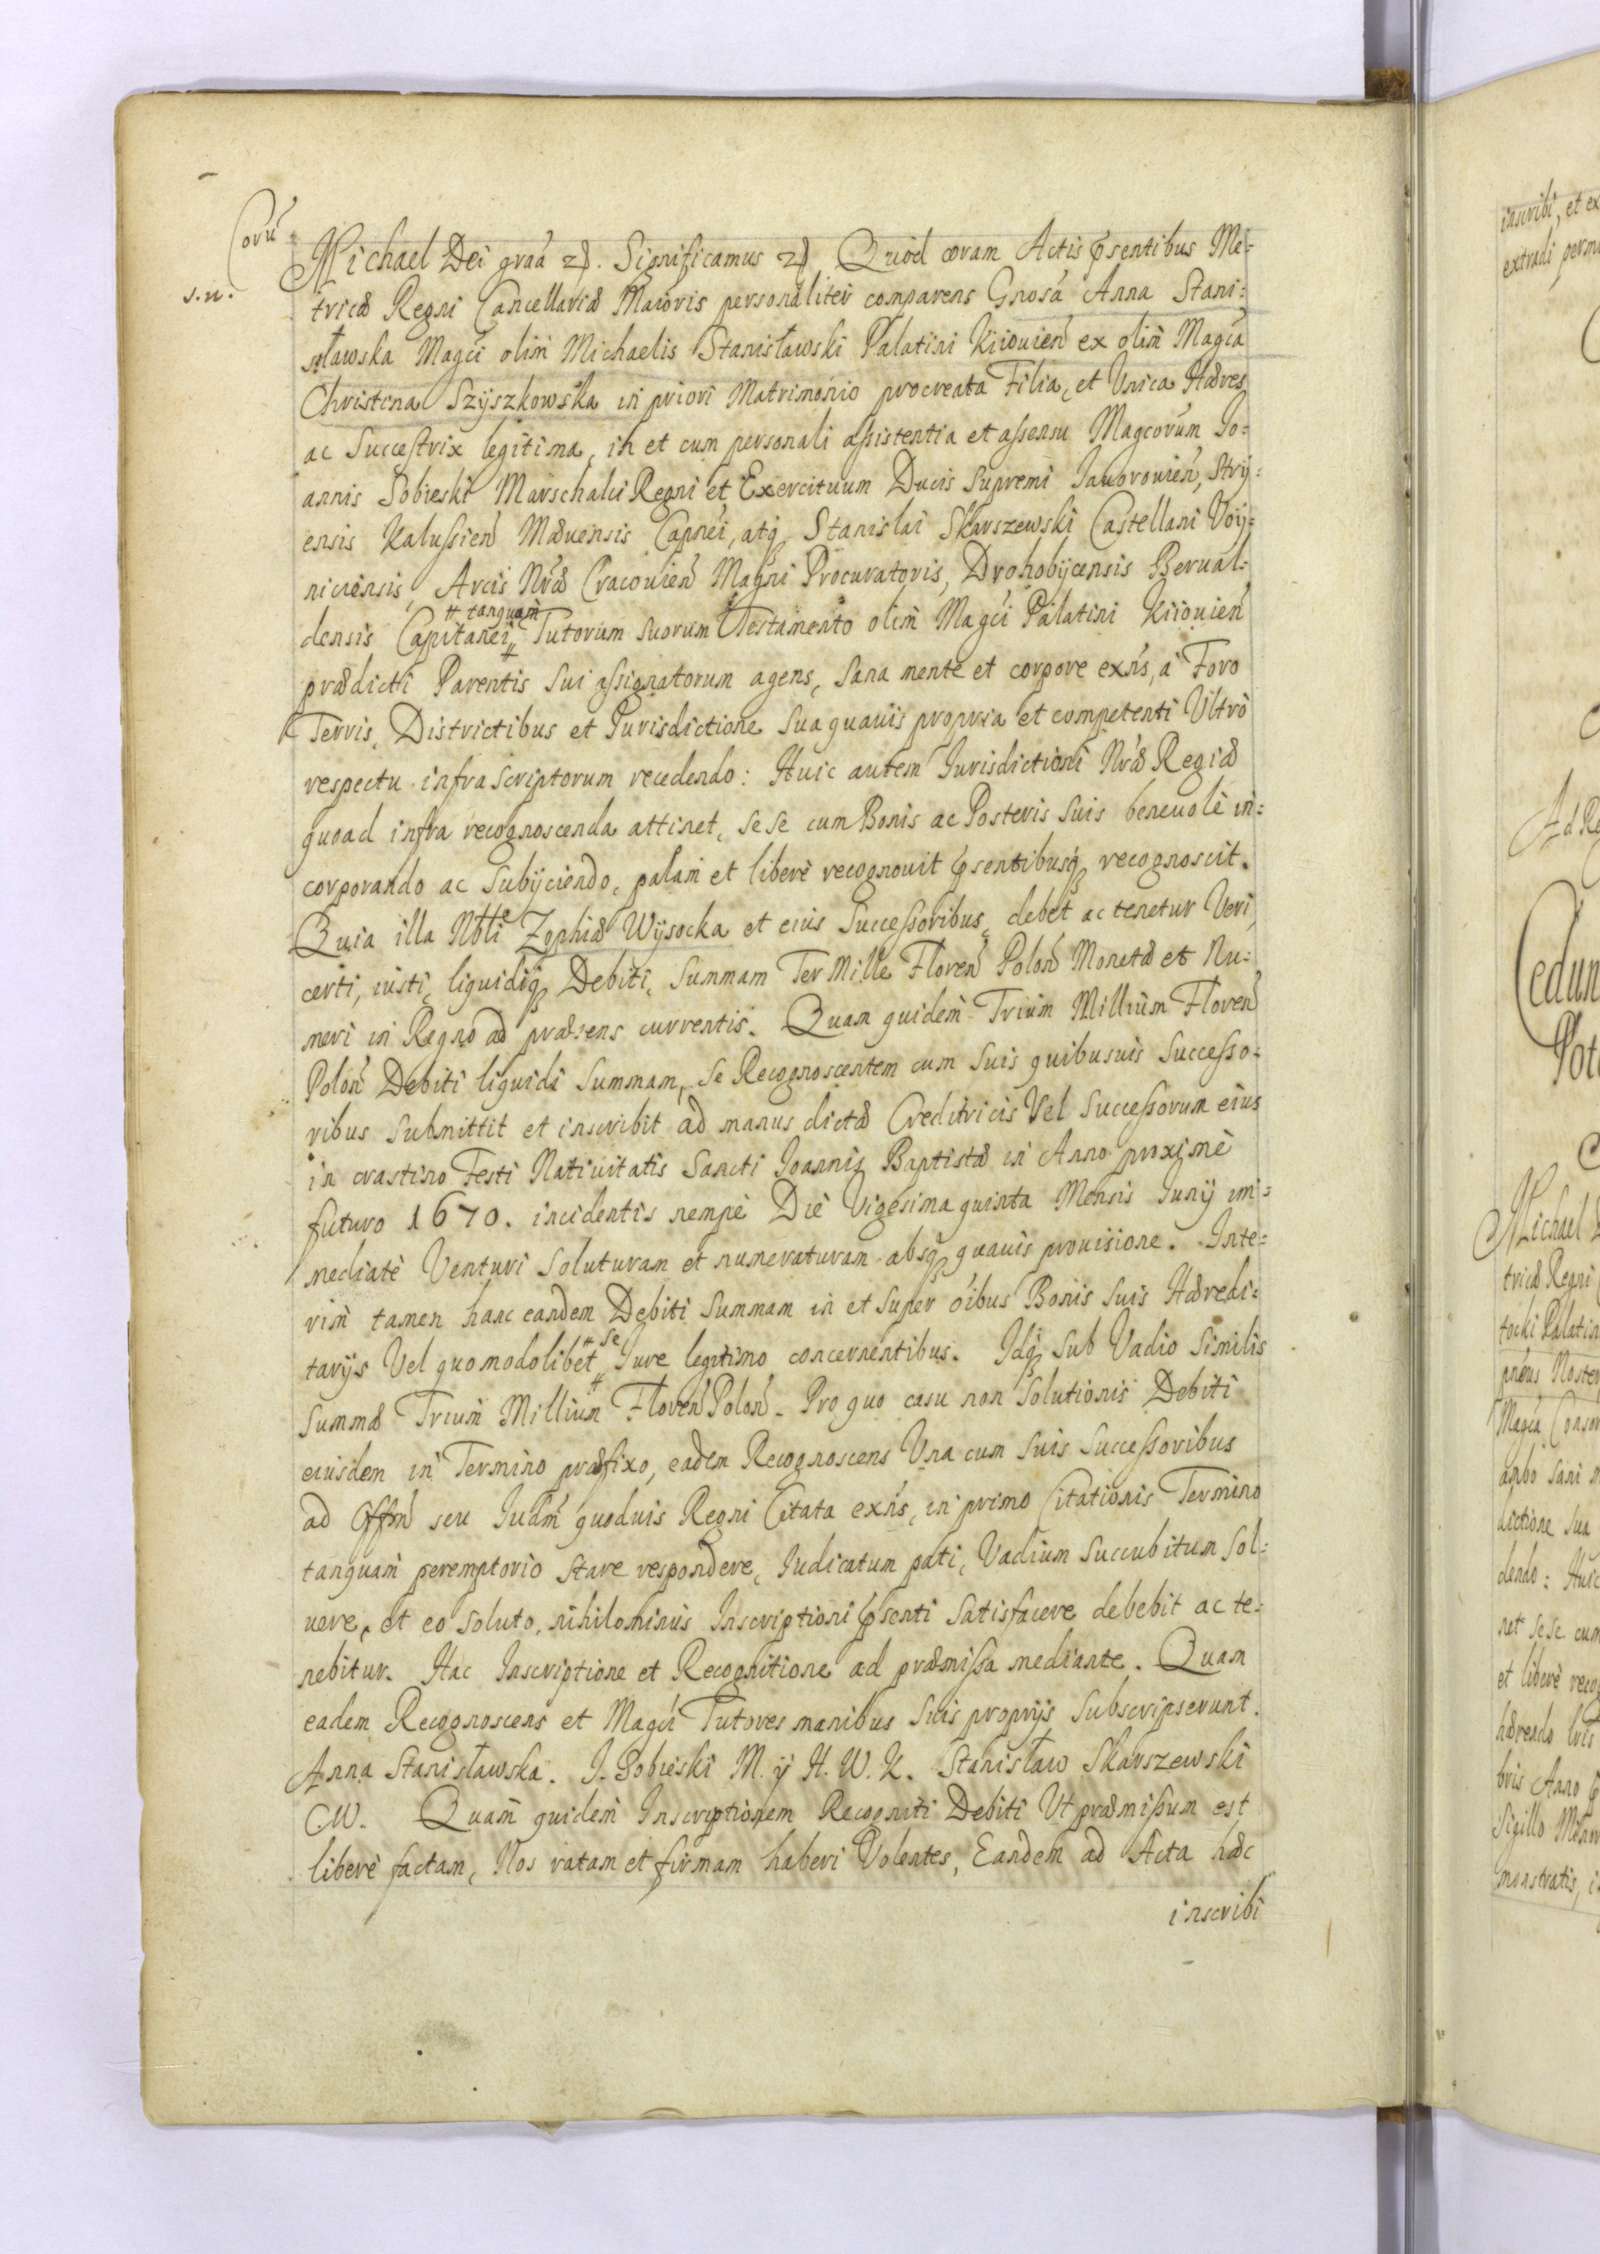 Coru
s.n.
Michael Dei graa etc. Significamus etc. Quod coram Actis psentibus Me-
tricæ Regni Cancellariæ Maioris personaliter comparens Gnosa Anna Stani-
sławska Magci olim Michaelis Stanisławski Palatini Kiiouien ex olim Magca
Christina Szyszkowska in priori Matrimonio procreata Filia, et Unica Hæres
ac Successtrix legitima, in et cum personali assistentia et assensu Magcorum Jo-
annis Sobieski Marschalci Regni et Exercituum Ducis Supremi Jauorouien, Stry-
ensis Kalussien Mæuensis Capnei, atq Stanislai Skarszewski Castellani Voy-
niciensis, Arcis Nræ Cracouien Magni Procuratoris, Drohobycensis Berual-
densis Capitanei # tanquam # Tutorum suorum Testamento olim Magci Palatini Kiiouien
prædicti Parentis sui assignatorum agens, sana mente et corpore exns, a Foro
Terris, Districtibus et Jurisdictione sua quauis propria et competenti Ultro
respectu infrascriptorum recedendo: Huic autem Jurisdictioni Nræ Regiæ
quoad infra recognoscenda attinet, sese cum Bonis ac Posteris suis beneuole in-
corporando ac subijciendo, palam et libere recognouit psentibusq recognoscit.
Quia illa Nbli Zophiæ Wysocka et eius Successoribus, debet ac tenetur Veri,
certi, iusti, liquidiq Debiti, summam Ter Mille Floren Polon Monetæ et Nu-
meri in Regno ad præsens currentis. Quam quidem Trium Millium Floren
Polon Debiti liquidi summam, se Recognoscentem cum suis quibusuis Successo-
ribus submittit et inscribit ad manus dictæ Creditricis Vel Successorum eius
in crastino Festi Natiuitatis Sancti Joannis Baptistæ in Anno proxime
futuro 1670. incidentis nempe Die Vigesima quinta Mensis Junij im-
mediate Venturi soluturam et numeraturam absq quauis prouisione. Inte-
rim tamen hanc eandem Debiti summam in et super oibus Bonis suis Hæredi-
tarijs Vel quomodolibet # se # Jure legitimo concernentibus. Idq sub Vadio similis
summæ Trium Millium Floren Polon. Pro quo casu non solutionis Debiti
eiusdem in Termino præfixo, eadem Recognoscens Una cum suis Successoribus
ad Offm seu Judm quoduis Regni Citata exns, in primo Citationis Termino
tanquam peremptorio stare respondere, Judicatum pati, Vadium succubitum sol-
uere, et eo soluto, nihilominus Inscriptioni psenti satisfacere debebit ac te-
nebitur. Hac Inscriptione et Recognitione ad præmissa mediante. Quam
eadem Recognoscens et Magci Tutores manibus suis proprijs subscripserunt.
Anna Stanisławska. J. Sobieski M. y H. W. K. Stanisław Skarszewski
C.W. Quam quidem Inscriptionem Recogniti Debiti Ut præmissum est
libere factam, Nos ratam et firmam haberi Volentes, Eandem ad Acta hæc
inscribi
inscribi, et ex
extradi perm
Ad Re
Cedun
Poto
Michael
tricæ Regni
tocki Palatin
pneus Noster
Magca Consor
ambo sani
dictione sua
dendo: Huic
net sese cum
et libere reco
hærendo
bris Anno
Sigillo
monstratis, i